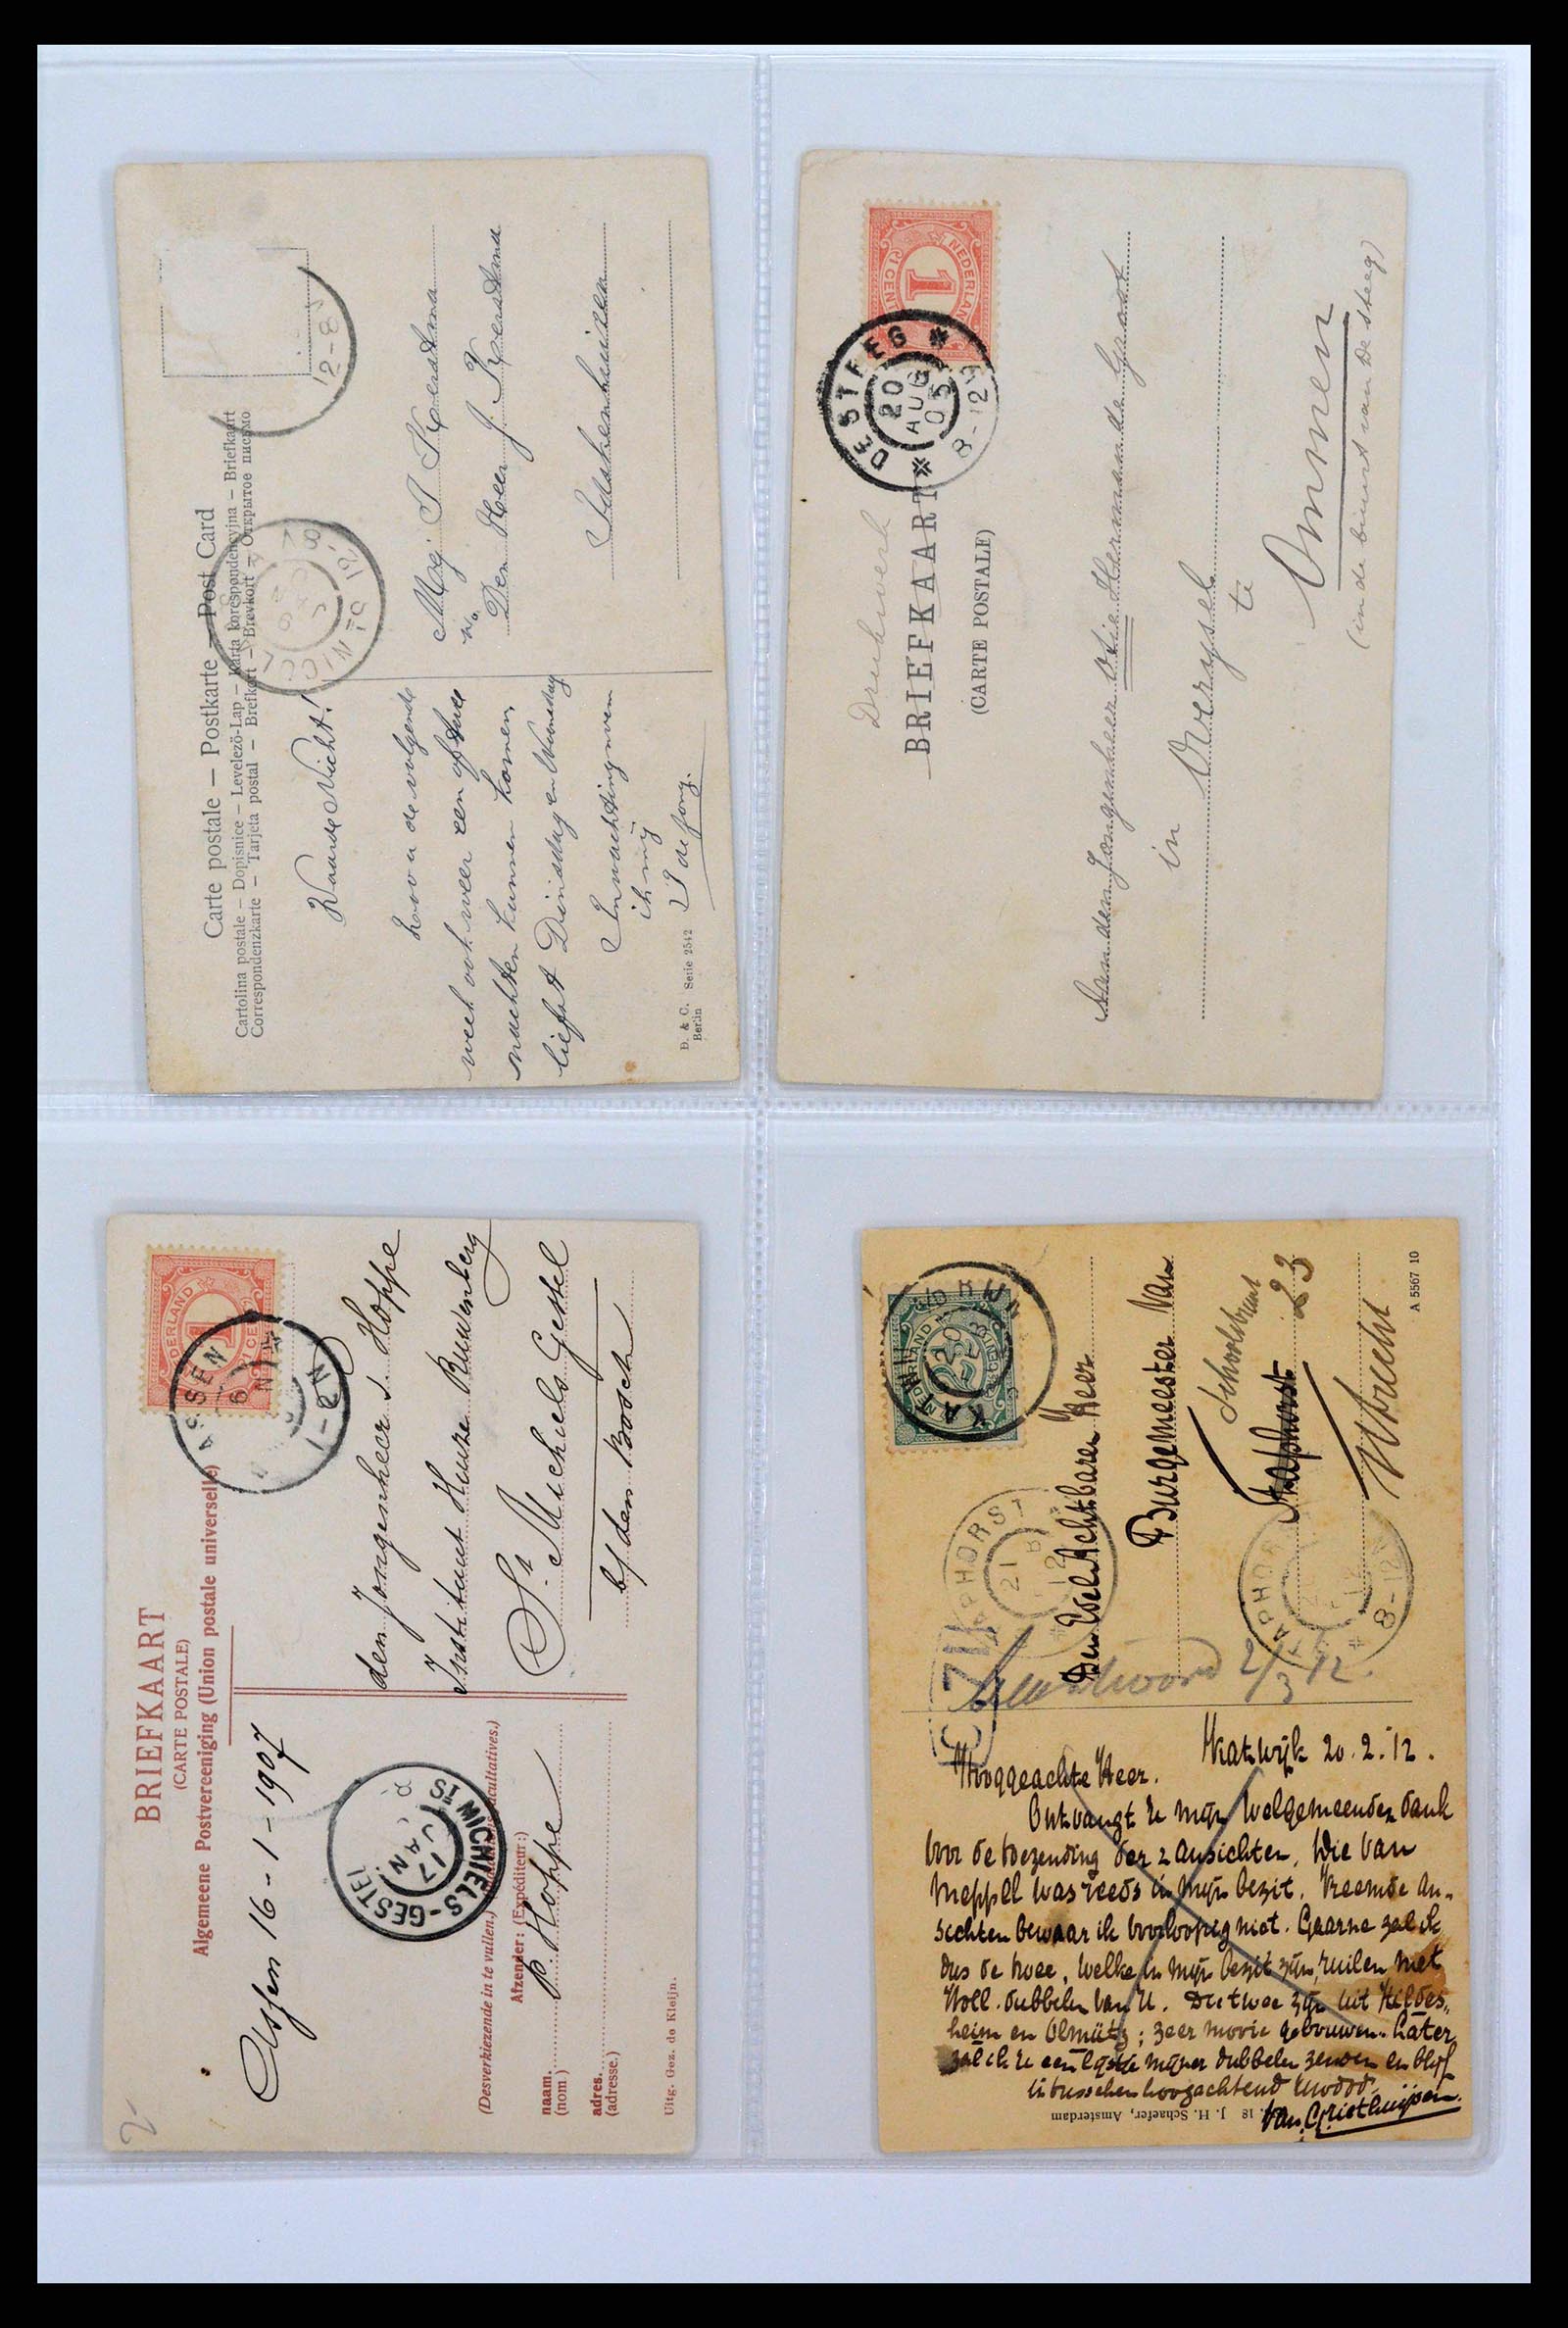 Carte postale — Postkarte — Post Card
Cartolina postale — Dopisnice — Levelező-Lap — Karta korespondencyjna — Briefkaart
Correspondenzkarte — Tarjeta postal — Brefkort — Brevkort — Открытое письмо
12-8
12-
Waarde Nicht!
zou u de volgende
week ook weer een of twee
nachten kunnen komen,
liefst Dinsdag en Woensdag
In wachting neem
ik mij
de Jong.
Mej
Den Heer J.
D. & C. Serie 2542
Berlin
NEDERLAND
1
1 CENT
DE STEEG
20
AUG
05
8-12V
Drukwerk
BRIEFKAART
(CARTE POSTALE)
Aan den Jongenheer Otie Hermann de Groot
in Overysel
te
Ommen
(in de buurt van De Steeg)
BRIEFKAART
(CARTE POSTALE)
Algemeene Postvereeniging (Union postale universelle)
NEDERLAND
1
ASSEN
1-2N
Assen 16-1-1907
den Jongenheer J. Hoppe
Instituut Huize Ruwenberg
St. Michiels Gestel
b/ den Bosch
St MICHIELS-GESTEL
17
JAN
(Desverkiezende in te vullen.)
Afzender: (Expéditeur:)
naam. P. Hoppe
(nom)
adres.
(adresse.)
Uitg. Gez. de Kleijn.
2-
KATWIJK
STAPHORST
21
8-12V
Den Edel Achtbaren Heer
Burgemeester Van
Staphorst
23
Utrecht
Beantwoord 2/3 12.
A 5567 10
Katwijk 20.2.12.
Hooggeachte Heer.
Ontvangt U mijn welgemeenden dank
voor de toezending der 2 ansichten. Die van
Meppel was reeds in mijn bezit. Vreemde an-
sichten bewaar ik voorloopig niet. Gaarne zal ik
dus de twee, welke in mijn bezit zijn, ruilen met
Holl. dubbelen van U. De twee zijn uit Hildes-
heim en Olmütz; zeer mooie gebouwen. Later
zal ik U een lijstje mijner dubbelen zenden en blijf
intusschen hoogachtend
Van Griethuijsen.
18 J. H. Schaefer, Amsterdam